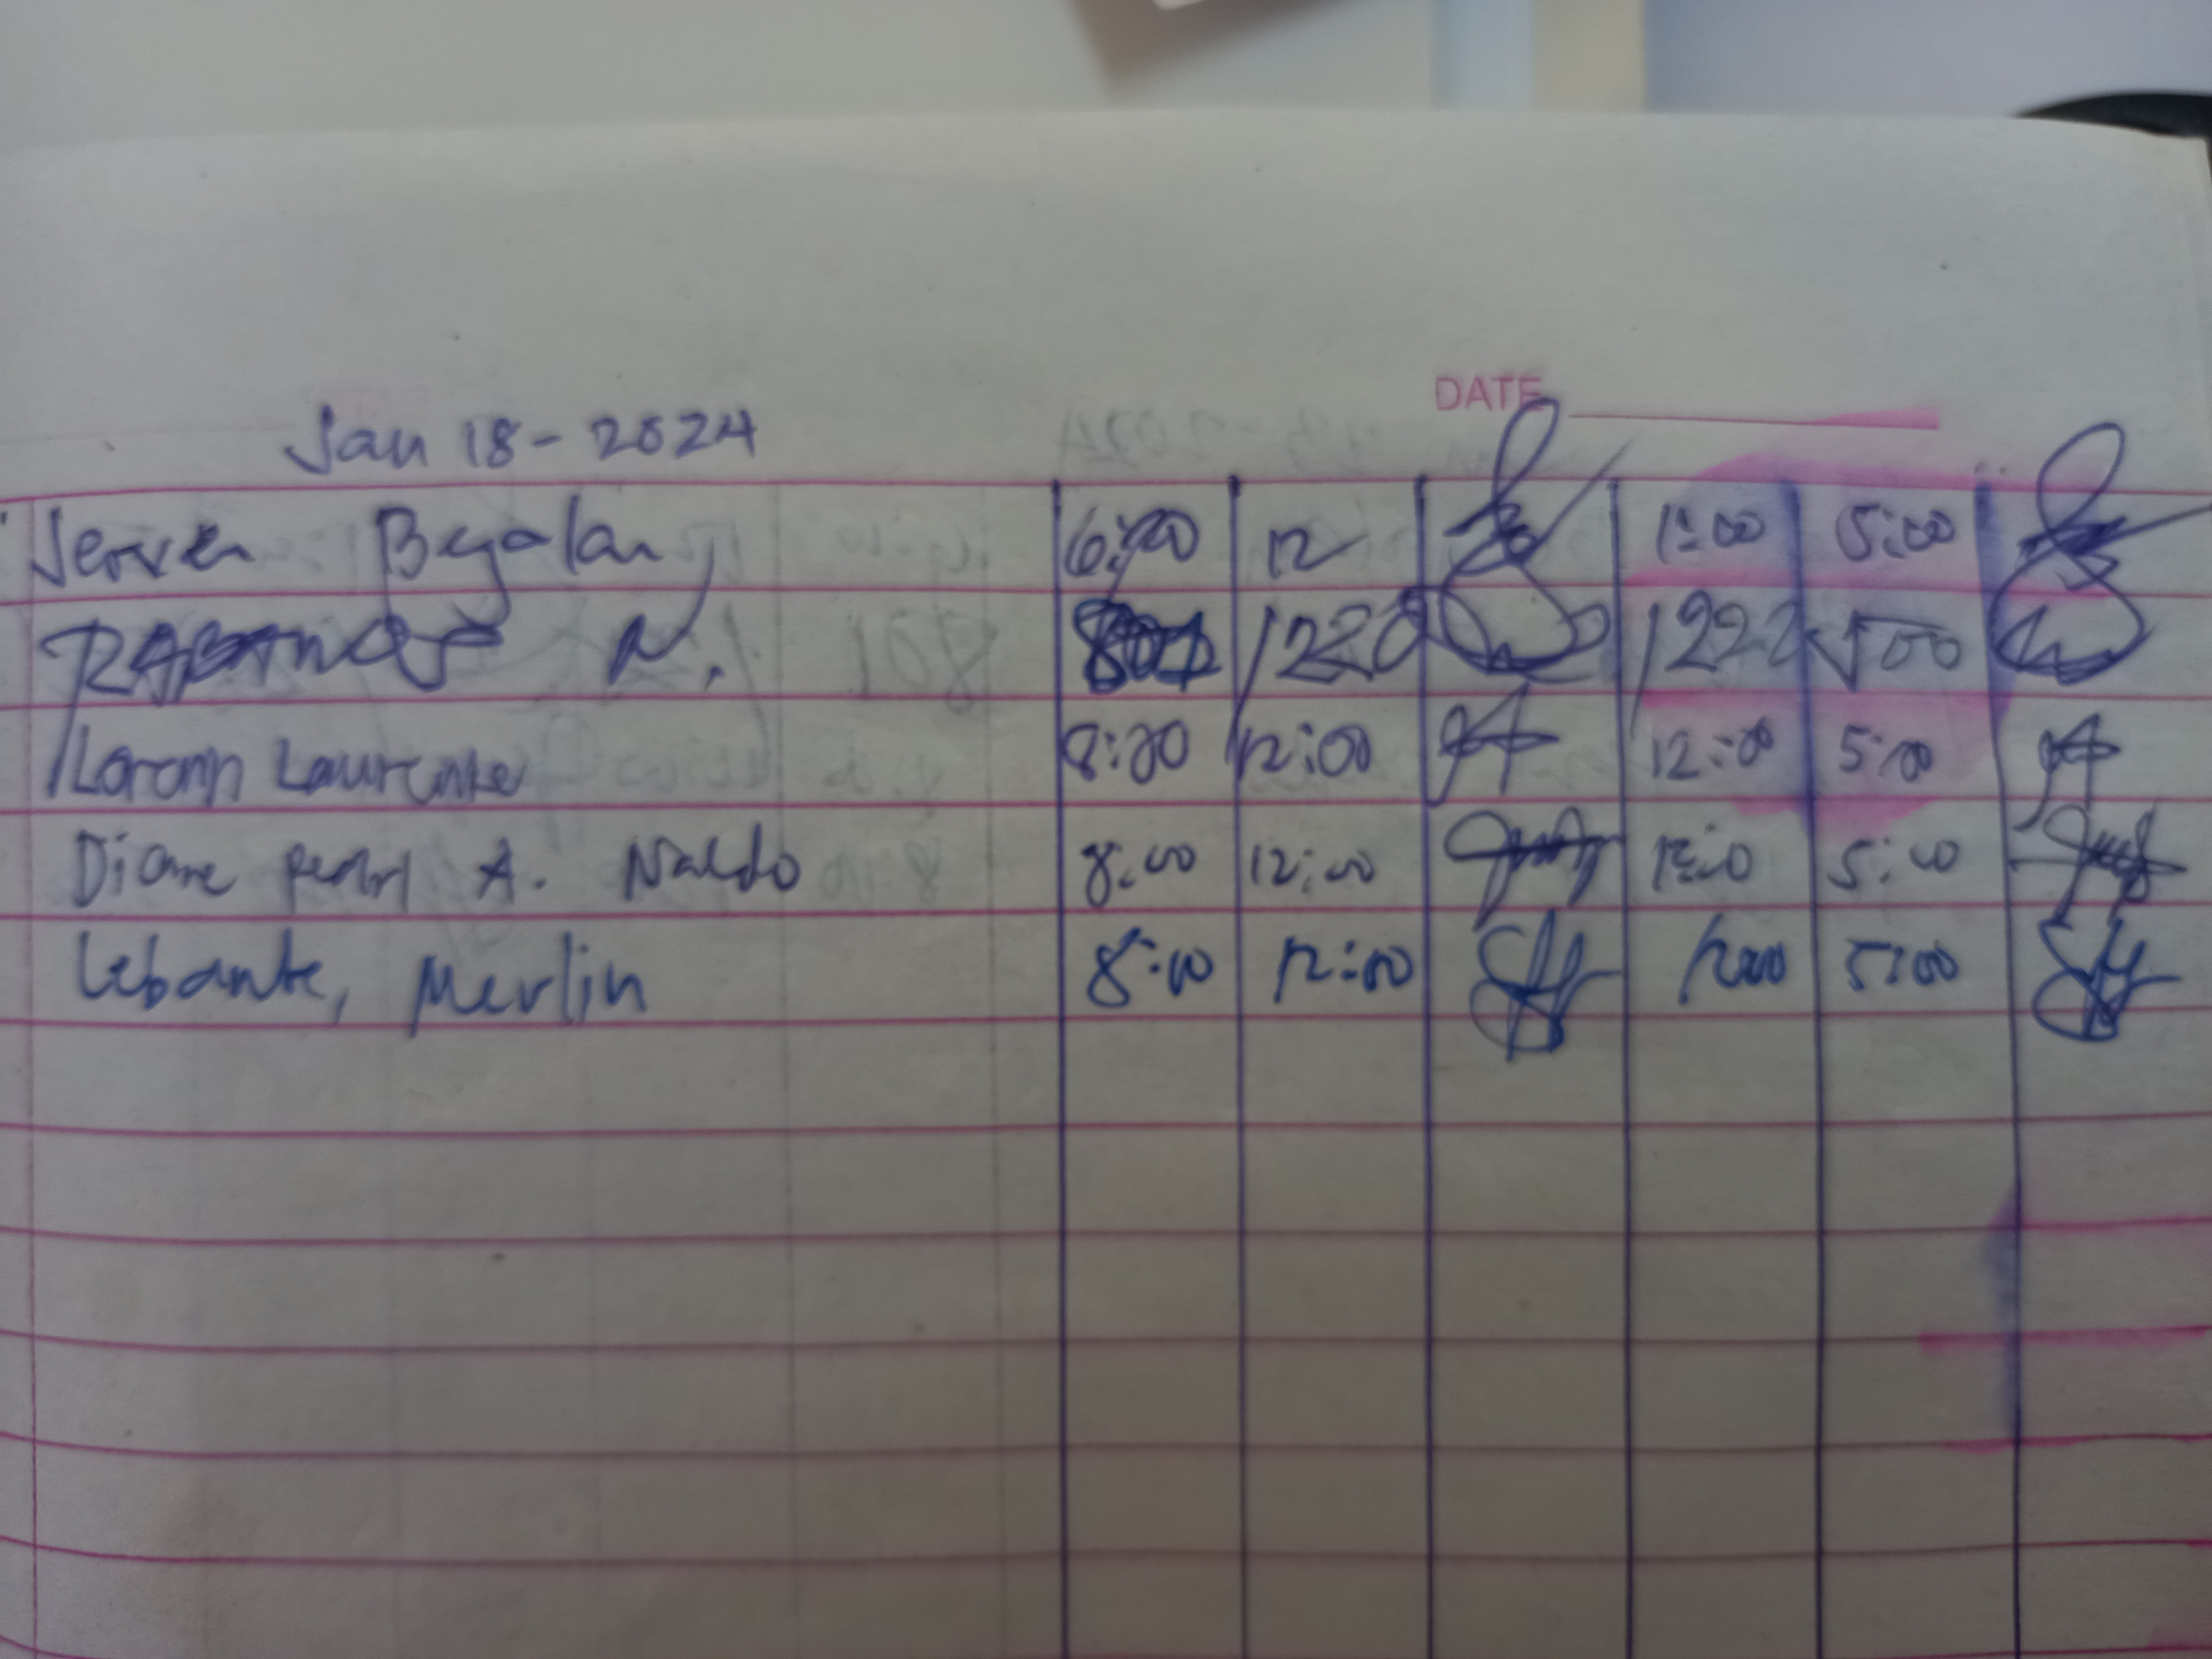 DATE
Jan 18-2024
Jerven Bygalan 6:00 12 1:00 5:00
N. 1220 1222 500
Lorann Laurente 8:00 12:00 12:00 5:00
Diane pearl A. Naldo 8:00 12:00 5:00
Lebante, Merlin 8:00 12:00 1200 5:00